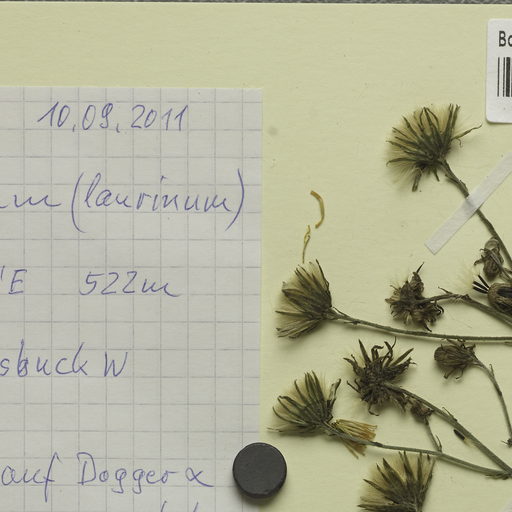 10.09.2011
Bo
um (laurinum)
'E 522m
sbuck W
auf Dogger α